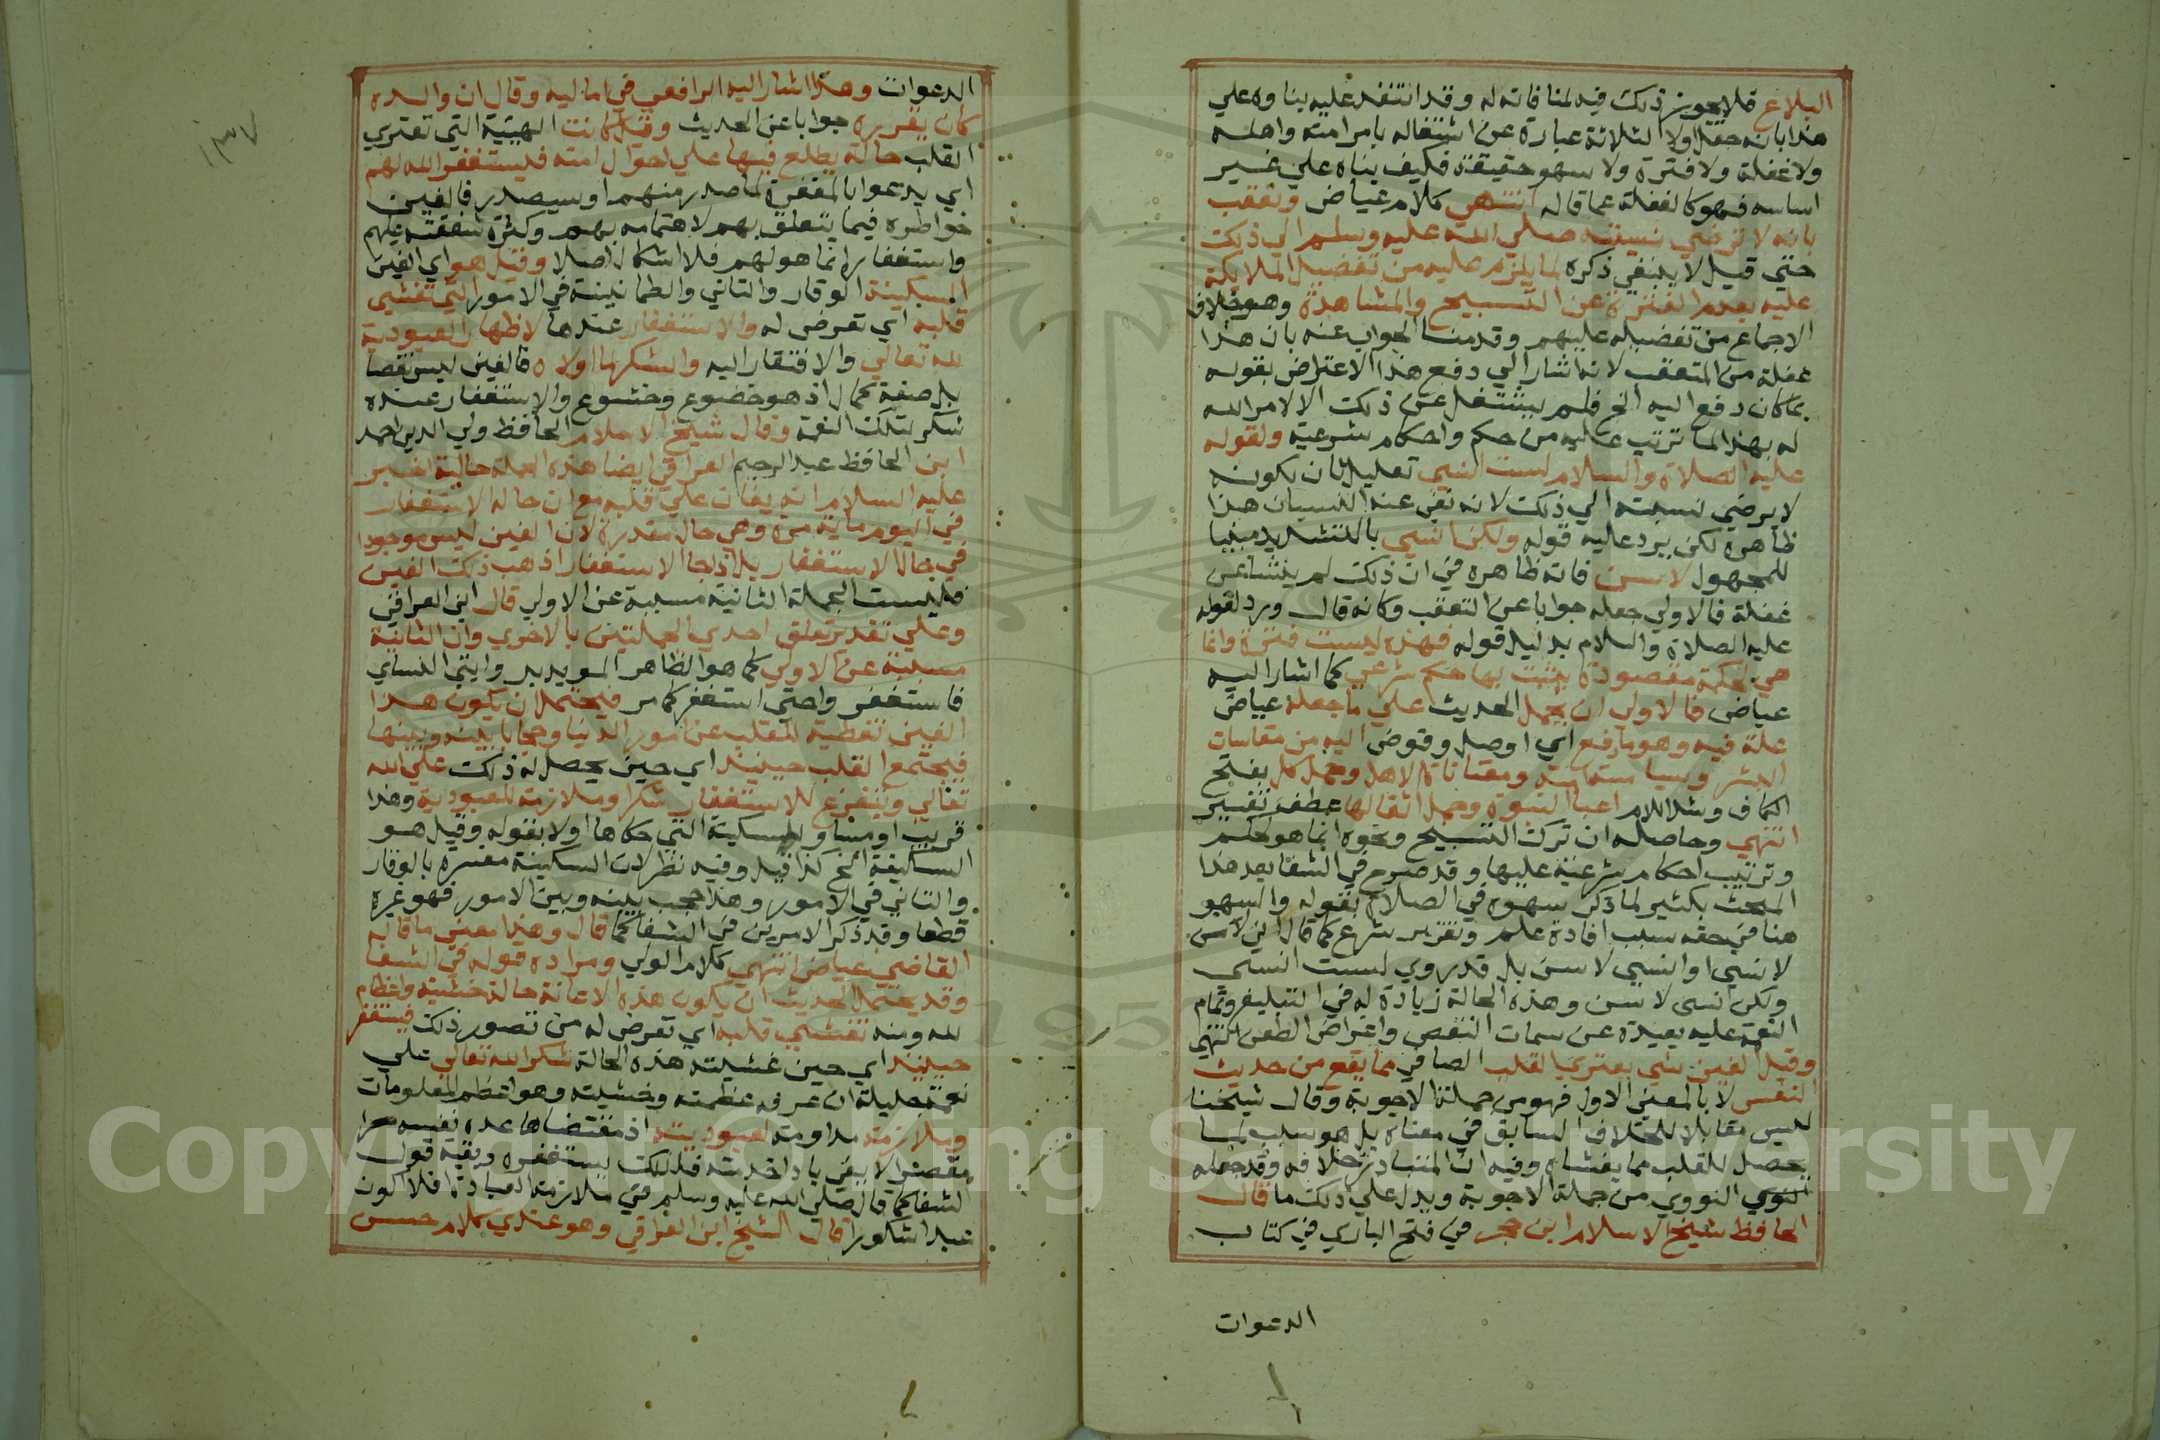 البلاغ فلا يجوز ذلك فيه لمنافاته له وقد انتقد عليه بناوه علي
هذا بانه جعل اولا الثلاثة عبارة عن اشتغاله بامر امته واهله
ولا غفلة ولا فترة ولا سهو حقيقة فكيف بناه علي غير
اساسه فهو كالغفلة عما قاله انتهي كلام عياض وتعقب
بانه لا ترضي نسبته صلي الله عليه وسلم الي ذلك
حتي قيل لا ينبغي ذكره لما يلزم عليه من تفضيل الملايكة
عليه بعدم الفترة عن التسبيح والمشاهدة وهو خلاف
الاجماع من تفضيله عليهم وقدمنا الجواب عنه بان هذا
غفلة من المتعقب لانه اشار الي دفع هذا الاعتراض بقوله
بما كان دفع اليه الخ فلم يشتغل عن ذلك الا لامر الله
له بهذا لما ترتب عليه من حكم واحكام شرعية ولقوله
عليه الصلاة والسلام لست انسي تعليل لان يكونه
لا يرضي نسبته الي ذلك لانه نفي عنه النسيان هذا
ظاهره لكن يرد عليه قوله ولكن انسي بالتشديد مبنيا
للمجهول لاسن فانه ظاهره في ان ذلك لم ينشا عن
غفلة فالاولي جعله جوابا عن التعقب وكانه قال ورد لقوله
عليه الصلاة والسلام بدليل قوله فهذه ليست فترة وانما
هي لحكمة مقصودة يثبت بها حكم شرعي كما اشار اليه
عياض فالاولي ان يحمل الحديث علي ما جعله عياض
علة فيه وهو ما دفع اي اوصل وفوض اليه من مقاسات
البشر وسياسة امته ومعاناة الاهل وحمل كل بفتح
الكاف وشد اللام اعباء النبوة وحمل اثقالها عطف تفسير
انتهي وحاصله ان ترك التسبيح ونحوه انما هو لحكم
وترتيب احكام شرعية عليها وقد صرح في الشفا بعد هذا
المبحث بكثير لما ذكر سهوه في الصلاة بقوله والسهو
هنا في حقه سبب افادة علم وتقرير شرع كما قال اني لاسن
لا نسي او انسي لاسن بل قد روي لست انسي
ولكن انسي لاسن وهذه الحالة زيادة له في التبليغ وتمام
النعمة عليه بعيدة عن سمات النقص واغراض الطعن انتهي
وقيل الغين شي يعتري القلب الصافي مما يقع من حديث
النفس لا بالمعني الاول فهو من جملة الاجوبة وقال شيخنا
ليس مقابلا للخلاف السابق في معناه بل هو سبب لما
يحصل للقلب مما يغشاه وفيه ان المتبادر خلافه وقد جعله
النووي من جملة الاجوبة ويدل علي ذلك ما قال
الحافظ شيخ الاسلام ابن حجر في فتح الباري في كتاب
الدعوات
الدعوات وهذا اشار اليه الرافعي في اماليه وقال ان والده
كان يقرره جوابا عن الحديث وقيل كانت الهيئة التي تعتري
القلب حالة يطلع فيها علي احوال امته فيستغفر الله لهم
اي يدعوا بالمغفرة لما صدر منهم او سيصدر فالغين
خواطره فيما يتعلق بهم لاهتمامه بهم وكثرة شفقته عليهم
واستغفاره انما هو لهم فلا اشكال اصلا وقيل هو اي الغين
السكينة الوقار والتاني والطمانينة في الامور التي تغشي
قلبه اي تعرض له والاستغفار عندها لاظهار العبودية
لله تعالي والافتقار اليه والشكر لما اولاه فالغين ليس نقصا
بل صفة كمال اذ هو خضوع وخشوع والاستغفار عنده
شكر لتلك النعمة وقال شيخ الاسلام الحافظ ولي الدين احمد
ابن الحافظ عبد الرحيم العراقي ايضا هذه الجملة حالية اخبر
عليه السلام انه يغان علي قلبه مع ان حاله الاستغفار
في اليوم ماية مرة وهي حال مقدرة لان الغين ليس موجودا
في حال الاستغفار بل اذا جا الاستغفار اذهب ذلك الغين
فليست الجملة الثانية مسببة عن الاولي قال ابن العراقي
وعلي تقدير تعلق احدي الجملتين بالاخري وان الثانية
مسببة عن الاولي كما هو الظاهر المويد بروايتي النساي
فاستغفر وحتي استغفر كما مر فيحتمل ان يكون هذا
الغين تغطية للقلب عن امور الدنيا وحجابا بينه وبينها
فيجتمع القلب حينيذ اي حين يحصل له ذلك علي الله
تعالي ويتفرغ للاستغفار شكرا وملازمة للعبودية وهذا
قريب او مساو للسكينة التي حكاها اولا بقوله وقيل هو
السكينة الخ كذا قيل وفيه نظر لان السكينة مفسرة بالوقار
والتاني في الامور وهذا حجب بينه وبين الامور فهو غيره
قطعا وقد ذكر الامرين في الشفا كما قال وهذا معني ما قاله
القاضي عياض انتهي كلام الولي ومراده قوله في الشفا
وقد يحتمل الحديث ان يكون هذه الاغانة حالة خشية واعظام
لله ومنه تغشي قلبه اي تعرض له من تصور ذلك فيستغفر
حينيذ اي حين غشيته هذه الحالة شكرا لله تعالي علي
نعمة جليلة ان عرفه عظمته وخشيته وهو اعظم المعلومات
وملازمة مداومة لعبوديته اذ مقتضاها عده نفسه
مقصرا لا يفي باداء خدمته فلذلك يستغفره وبقية قول
الشفا كما قال صلي الله عليه وسلم في ملازمة العبادة افلا اكون
عبدا شكورا قال الشيخ ابن العراقي وهو عندي كلام حسن
١٣٧
Copyright © King Saud University
1957